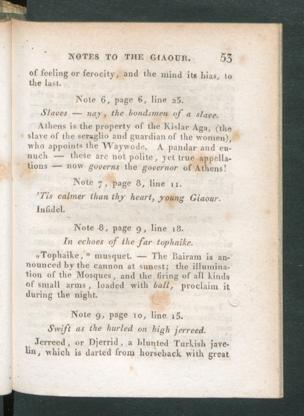 NOTES TO THE GIAOUR. 53
of feeling or ferocity, and the mind its bias, to
the last.
Note 6, page 6, line 25.
Slaves — nay, the bondsmen of a slave.
Athens is the property of the Kislar Aga, (the
slave of the seraglio and guardian of the women),
who appoints the Waywode. A pandar and eu-
nuch — these are not polite, yet true appella-
tions — now governs the governor of Athens!
Note 7, page 8, line 11.
'Tis calmer than thy heart, young Giaour.
Infidel.
Note 8, page 9, line 18.
In echoes of the far tophaike.
„Tophaike,“ musquet. — The Bairam is an-
nounced by the cannon at sunset; the illumina-
tion of the Mosques, and the firing of all kinds
of small arms, loaded with ball, proclaim it
during the night.
Note 9, page 10, line 15.
Swift as the hurled on high jerreed.
Jerreed, or Djerrid, a blunted Turkish jave-
lin, which is darted from horseback with great